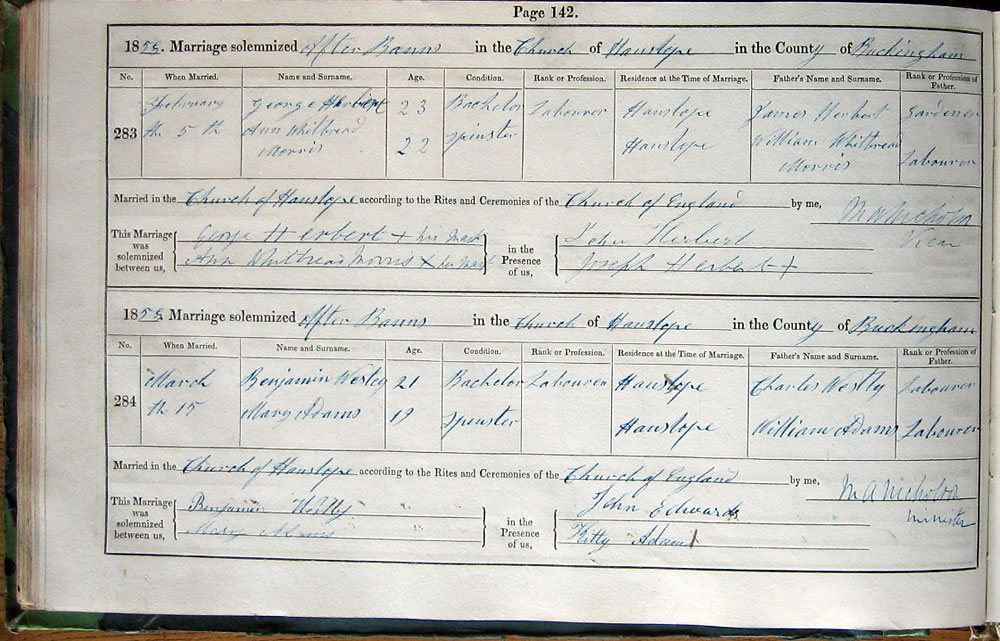 Page 142.
1859. Marriage solemnized After Banns in the Church of Hanslope in the County of Buckingham
No. When Married. Name and Surname. Age. Condition. Rank or Profession. Residence at the Time of Marriage. Father's Name and Surname. Rank or Profession of Father.
February George Herbert 23 Bachelor Labourer Hanslope James Herbert Gardener
283 th 5 th Ann Whitbread Morris 22 Spinster Hanslope William Whitbread Morris Labourer
Married in the Church of Hanslope according to the Rites and Ceremonies of the Church of England by me,
This Marriage was solemnized between us, George Herbert + his Mark in the Presence of us, John Herbert Vicar
Ann Whitbread Morris + her Mark Joseph Herbert +
1859. Marriage solemnized After Banns in the Church of Hanslope in the County of Buckingham
No. When Married. Name and Surname. Age. Condition. Rank or Profession. Residence at the Time of Marriage. Father's Name and Surname. Rank or Profession of Father.
March Benjamin Westley 21 Bachelor Labourer Hanslope Charles Westly Labourer
284 th 15 Mary Adams 19 Spinster Hanslope William Adams Labourer
Married in the Church of Hanslope according to the Rites and Ceremonies of the Church of England by me, M A Nicholson
This Marriage was solemnized between us, Benjamin in the Presence of us, John Edwards Minister
Mary Adams Kitty Adams